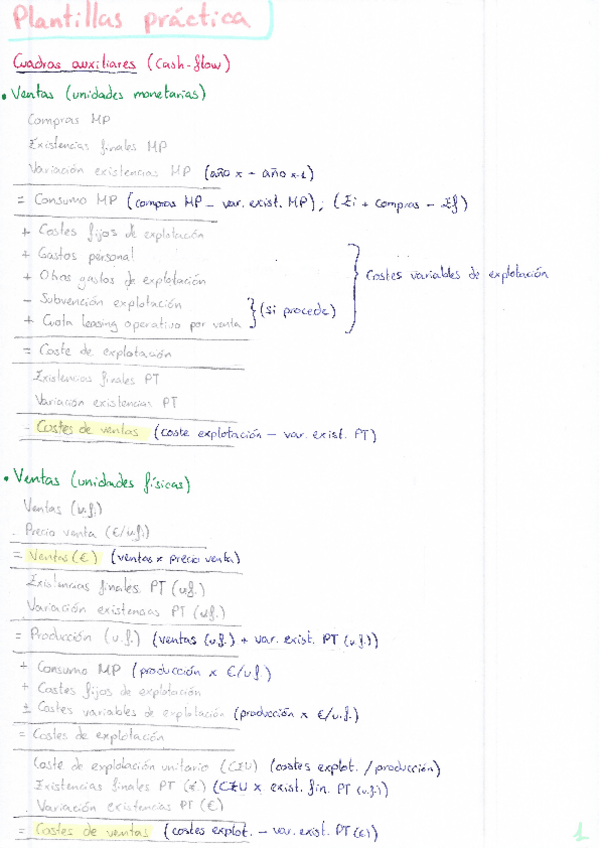 Plantillas práctica
Cuadros auxiliares (Cash-flow)
• Ventas (unidades monetarias)
Compras MP
Existencias finales MP
Variación existencias MP (año x - año x-1)
= Consumo MP (compras MP - var. exist. MP); (Ei + compras - Ef)
+ Costes fijos de explotación
+ Gastos personal
+ Otros gastos de explotación
- Subvención explotación
+ Cuota leasing operativo por venta
} (si procede)
} Costes variables de explotación
= Coste de explotación
Existencias finales PT
Variación existencias PT
= Costes de ventas (coste explotación - var. exist. PT)
• Ventas (unidades físicas)
Ventas (u.f.)
. Precio venta (€/u.f.)
= Ventas (€) (ventas x precio venta)
Existencias finales PT (u.f.)
Variación existencias PT (u.f.)
= Producción (u.f.) (ventas (u.f.) + var. exist. PT (u.f.))
+ Consumo MP (producción x €/u.f.)
+ Costes fijos de explotación
± Costes variables de explotación (producción x €/u.f.)
= Costes de explotación
Coste de explotación unitario (CEU) (costes explot. / producción)
Existencias finales PT (€) (CEU x exist. fin. PT (u.f.))
. Variación existencias PT (€)
= Costes de ventas (costes explot. - var. exist. PT (€))
1